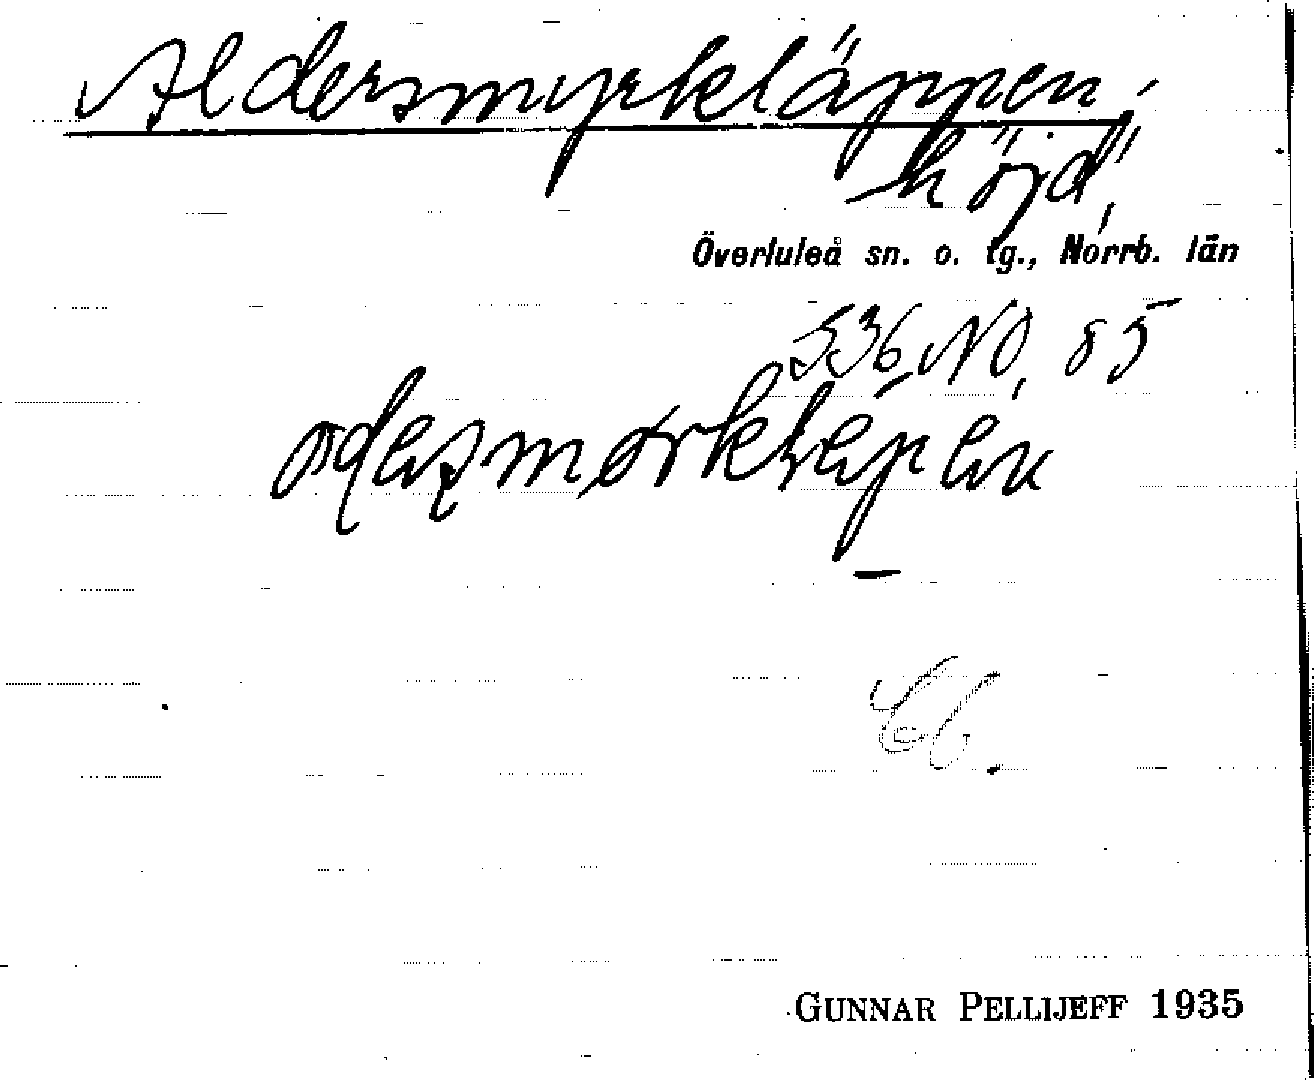 Aldersmyrkläppen,
"höjd",
Överluleå sn. o. tg., Norrb. län
S36, NO, 85
GUNNAR PELLIJEFF 1935